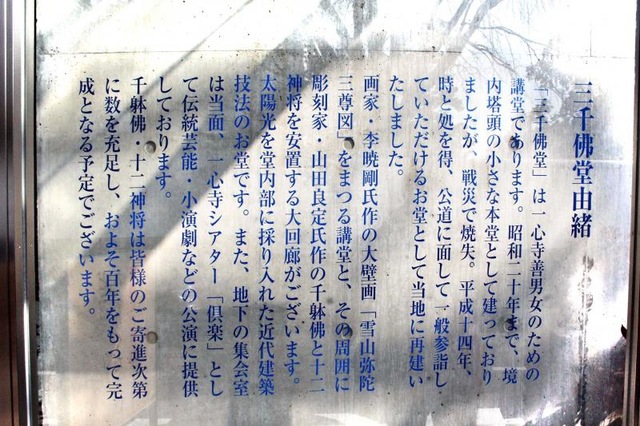 三千佛堂由緒
「三千佛堂」は一心寺善男女のための
講堂であります。昭和二十年まで、境
内塔頭の小さな本堂として建っており
ましたが、戦災で焼失。平成十四年、
時と処を得、公道に面して一般参詣し
ていただけるお堂として当地に再建い
たしました。
画家・李暁剛氏作の大壁画「雪山弥陀
三尊図」をまつる講堂と、その周囲に
彫刻家・山田良定氏作の千躰佛と十二
神将を安置する大回廊がございます。
太陽光を堂内部に採り入れた近代建築
技法のお堂です。また、地下の集会室
は当面、一心寺シアター「倶楽」とし
て伝統芸能・小演劇などの公演に提供
しております。
千躰佛・十二神将は皆様のご寄進次第
に数を充足し、およそ百年をもって完
成となる予定でございます。